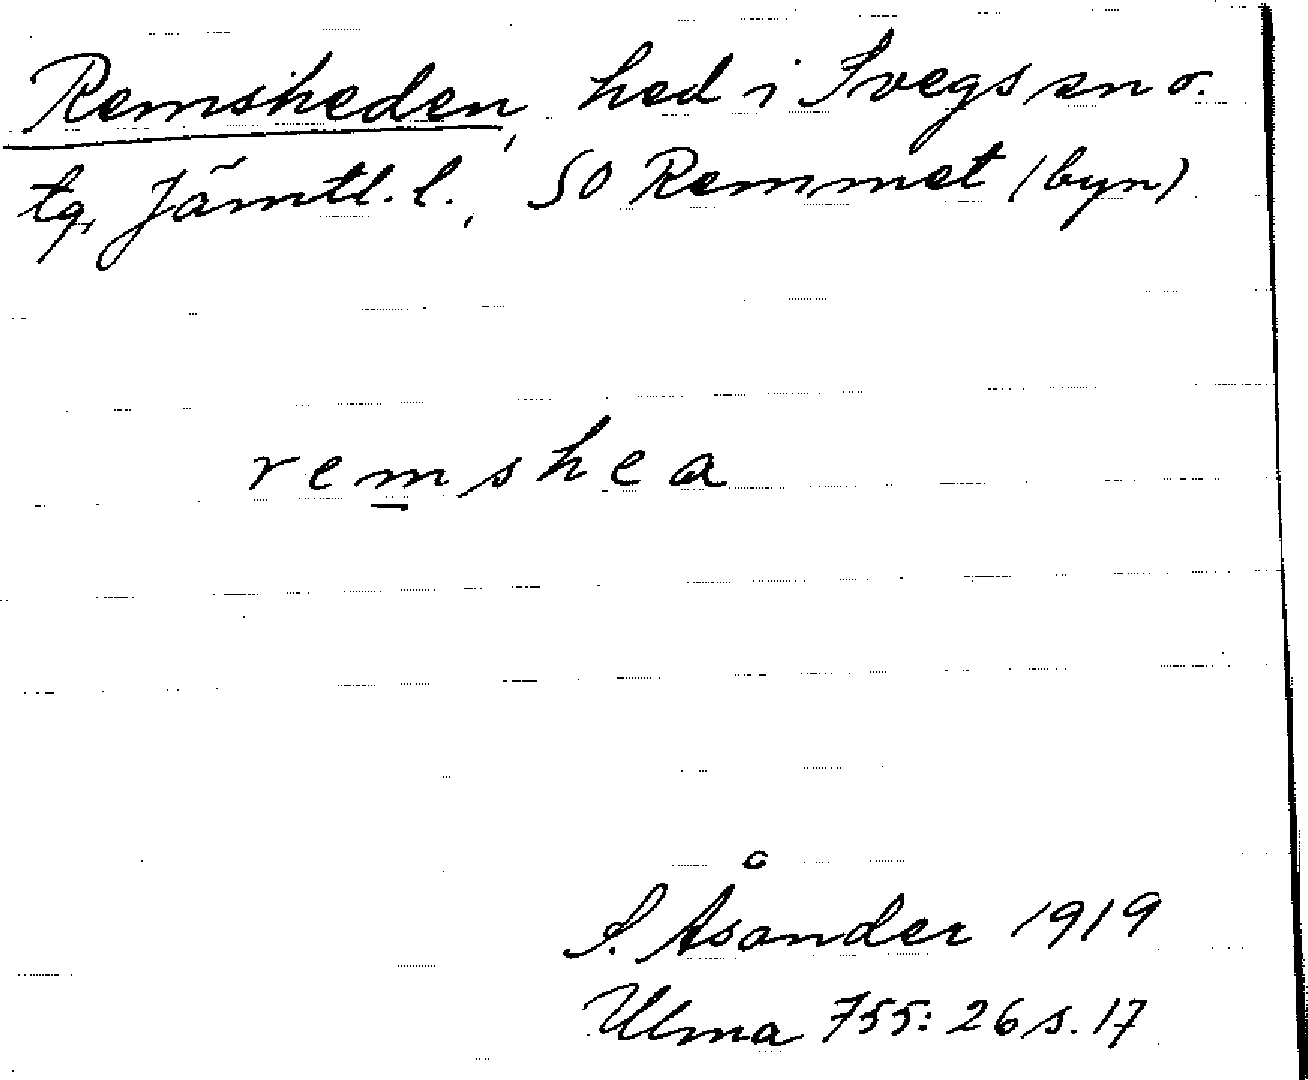 Remsheden, hed i Svegs sn o.
tg, Jämtl. l., SO Remmet (byn)
remshea
S. Åsander 1919
Ulma 755: 26 s. 17